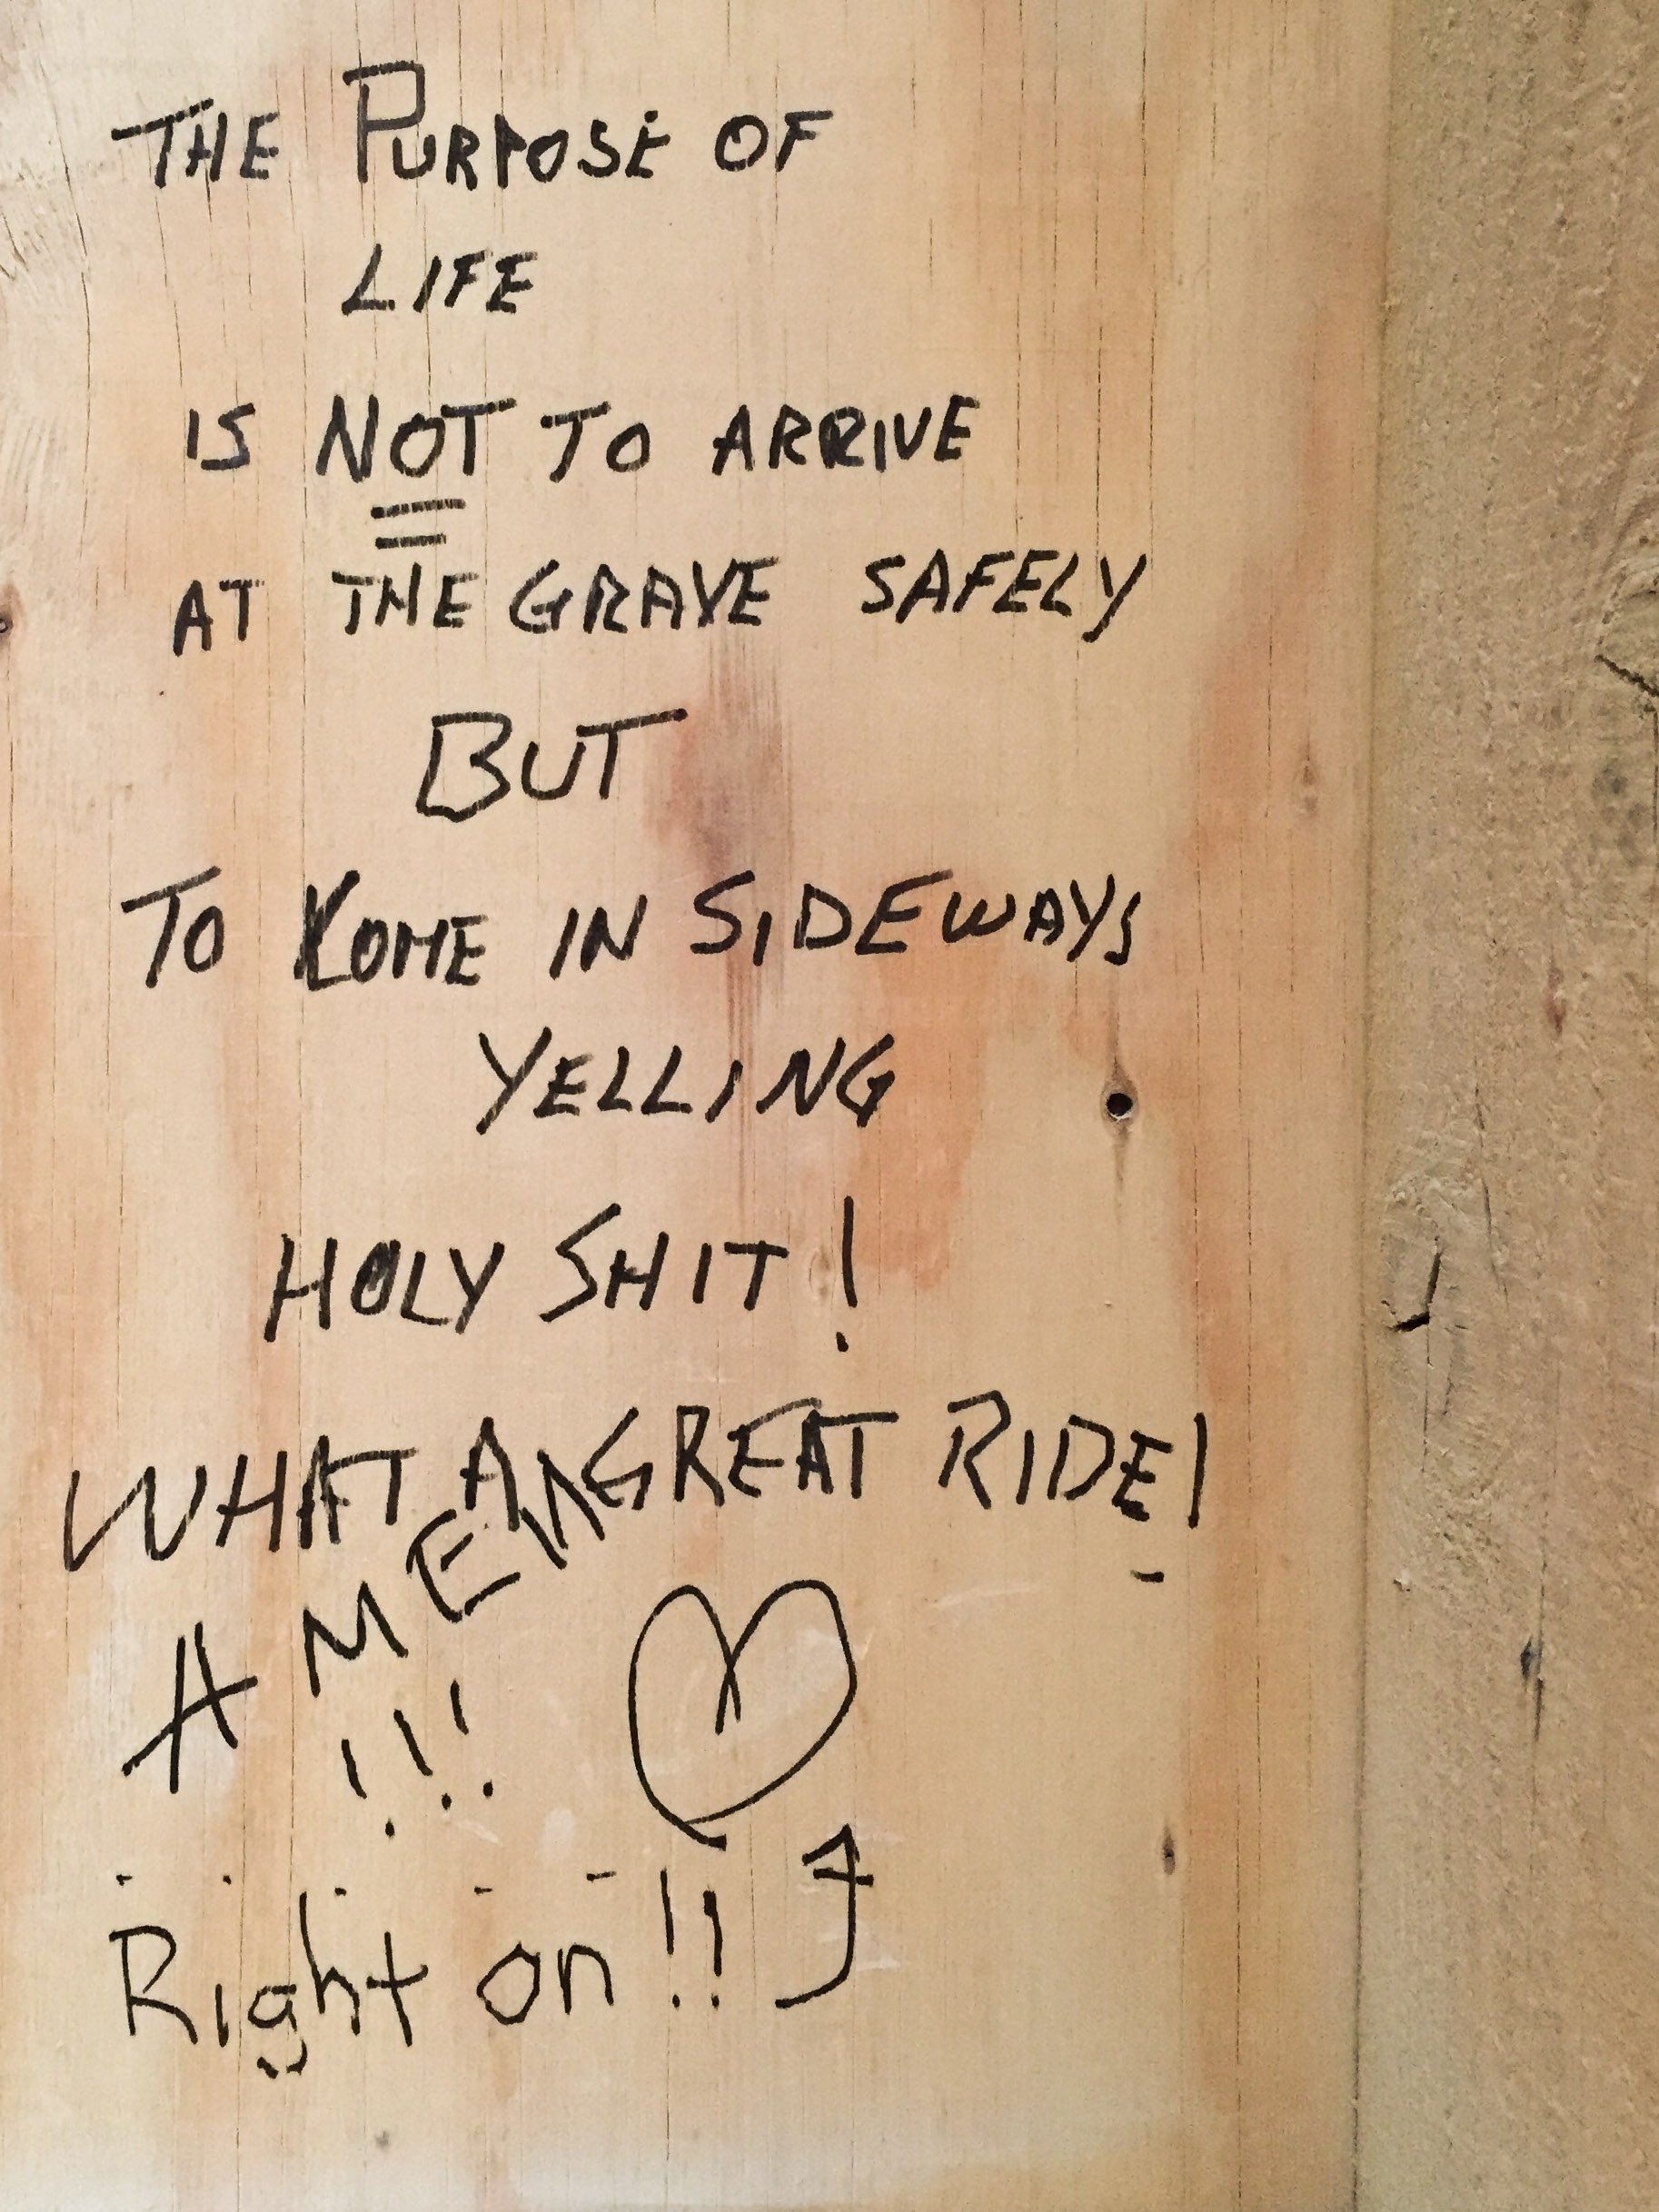 THE PURPOSE OF
LIFE
IS NOT TO ARRIVE
AT THE GRAVE SAFELY
BUT
TO KOME IN SIDEWAYS
YELLING
HOLY SHIT!
WHAT A GREAT RIDE!
AMEN
!!!
Right on!!